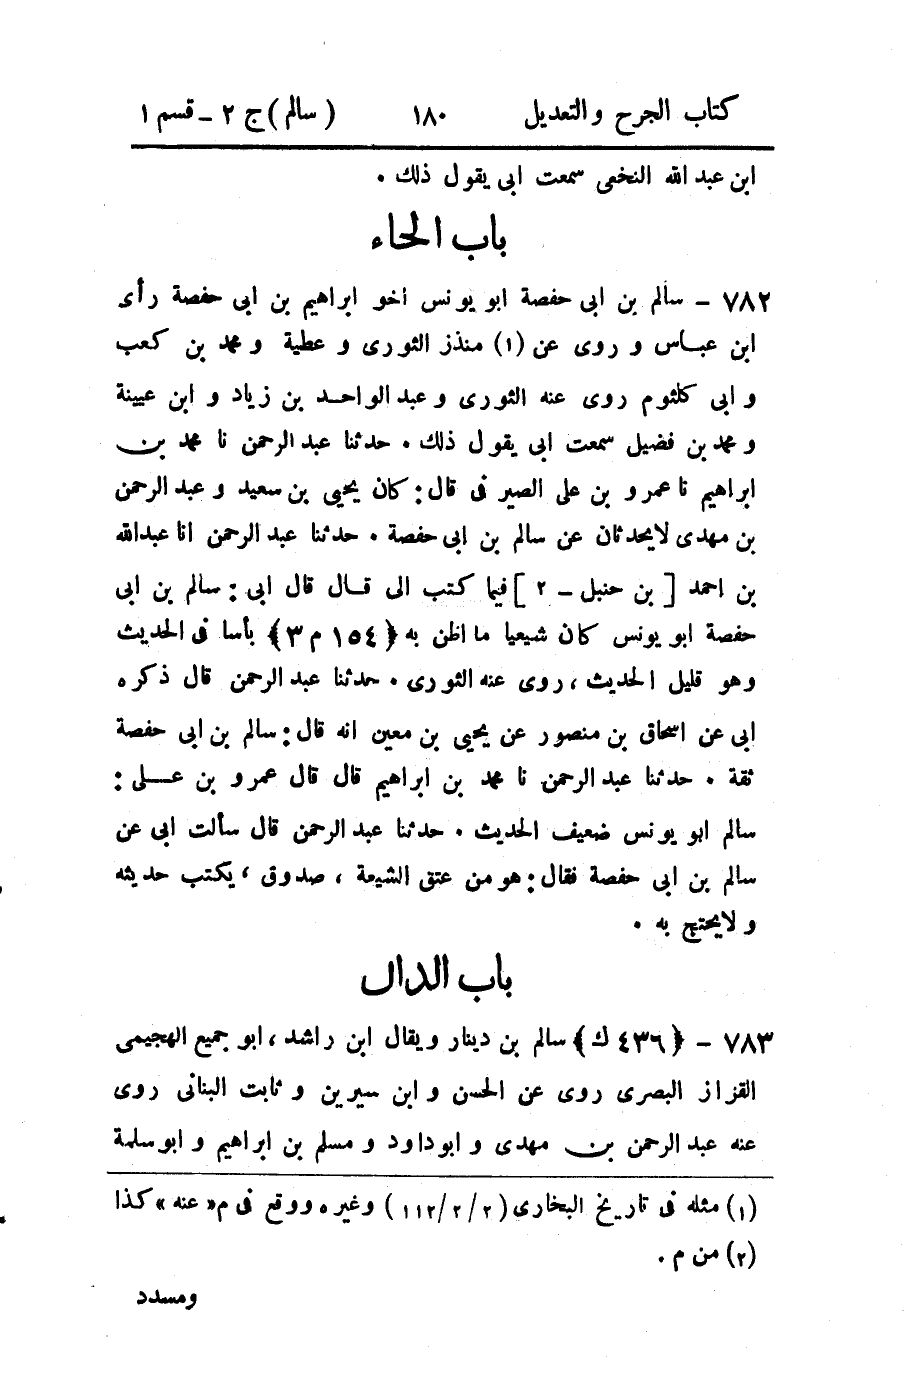 كتاب الجرح والتعديل ١٨٠ (سالم) ج ٢ - قسم ١
ابن عبد الله النخعى سمعت ابى يقول ذلك .
باب الحاء
٧٨٢ - سالم بن ابى حفصة ابو يونس اخو ابراهيم بن ابى حفصة رأى
ابن عباس و روى عن (١) منذر الثورى و عطية و محمد بن كعب
و ابى كلثوم روى عنه الثورى و عبد الواحد بن زياد و ابن عيينة
و محمد بن فضيل سمعت ابى يقول ذلك . حدثنا عبد الرحمن نا محمد بن
ابراهيم نا عمرو بن على الصيرفى قال : كان يحيى بن سعيد و عبد الرحمن
بن مهدى لايحدثان عن سالم بن ابى حفصة . حدثنا عبد الرحمن انا عبدالله
بن احمد [ بن حنبل - ٢ ] فيما كتب الى قال قال ابى : سالم بن ابى
حفصة ابو يونس كان شيعيا ما اظن به ﴿ ١٥٤ م ٣ ﴾ بأسا فى الحديث
وهو قليل الحديث ، روى عنه الثورى . حدثنا عبد الرحمن قال ذكره
ابى عن اسحاق بن منصور عن يحيى بن معين انه قال : سالم بن ابى حفصة
ثقة . حدثنا عبد الرحمن نا محمد بن ابراهيم قال قال عمرو بن عـلى :
سالم ابو يونس ضعيف الحديث . حدثنا عبد الرحمن قال سألت ابى عن
سالم بن ابى حفصة فقال : هو من عتق الشيعة ، صدوق ، يكتب حديثه
و لايحتج به .
باب الدال
٧٨٣ - ﴿ ٤٣٦ ك ﴾ سالم بن دينار ويقال ابن راشد ، ابو جميع الهجيمى
القزاز البصرى روى عن الحسن و ابن سيرين و ثابت البنانى روى
عنه عبد الرحمن بن مهدى و ابو داود و مسلم بن ابراهيم و ابو سلمة
(١) مثله فى تاريخ البخارى (٢/٢/١١٢) وغيره ووقع فى م « عنه » كذا
(٢) من م .
ومسدد